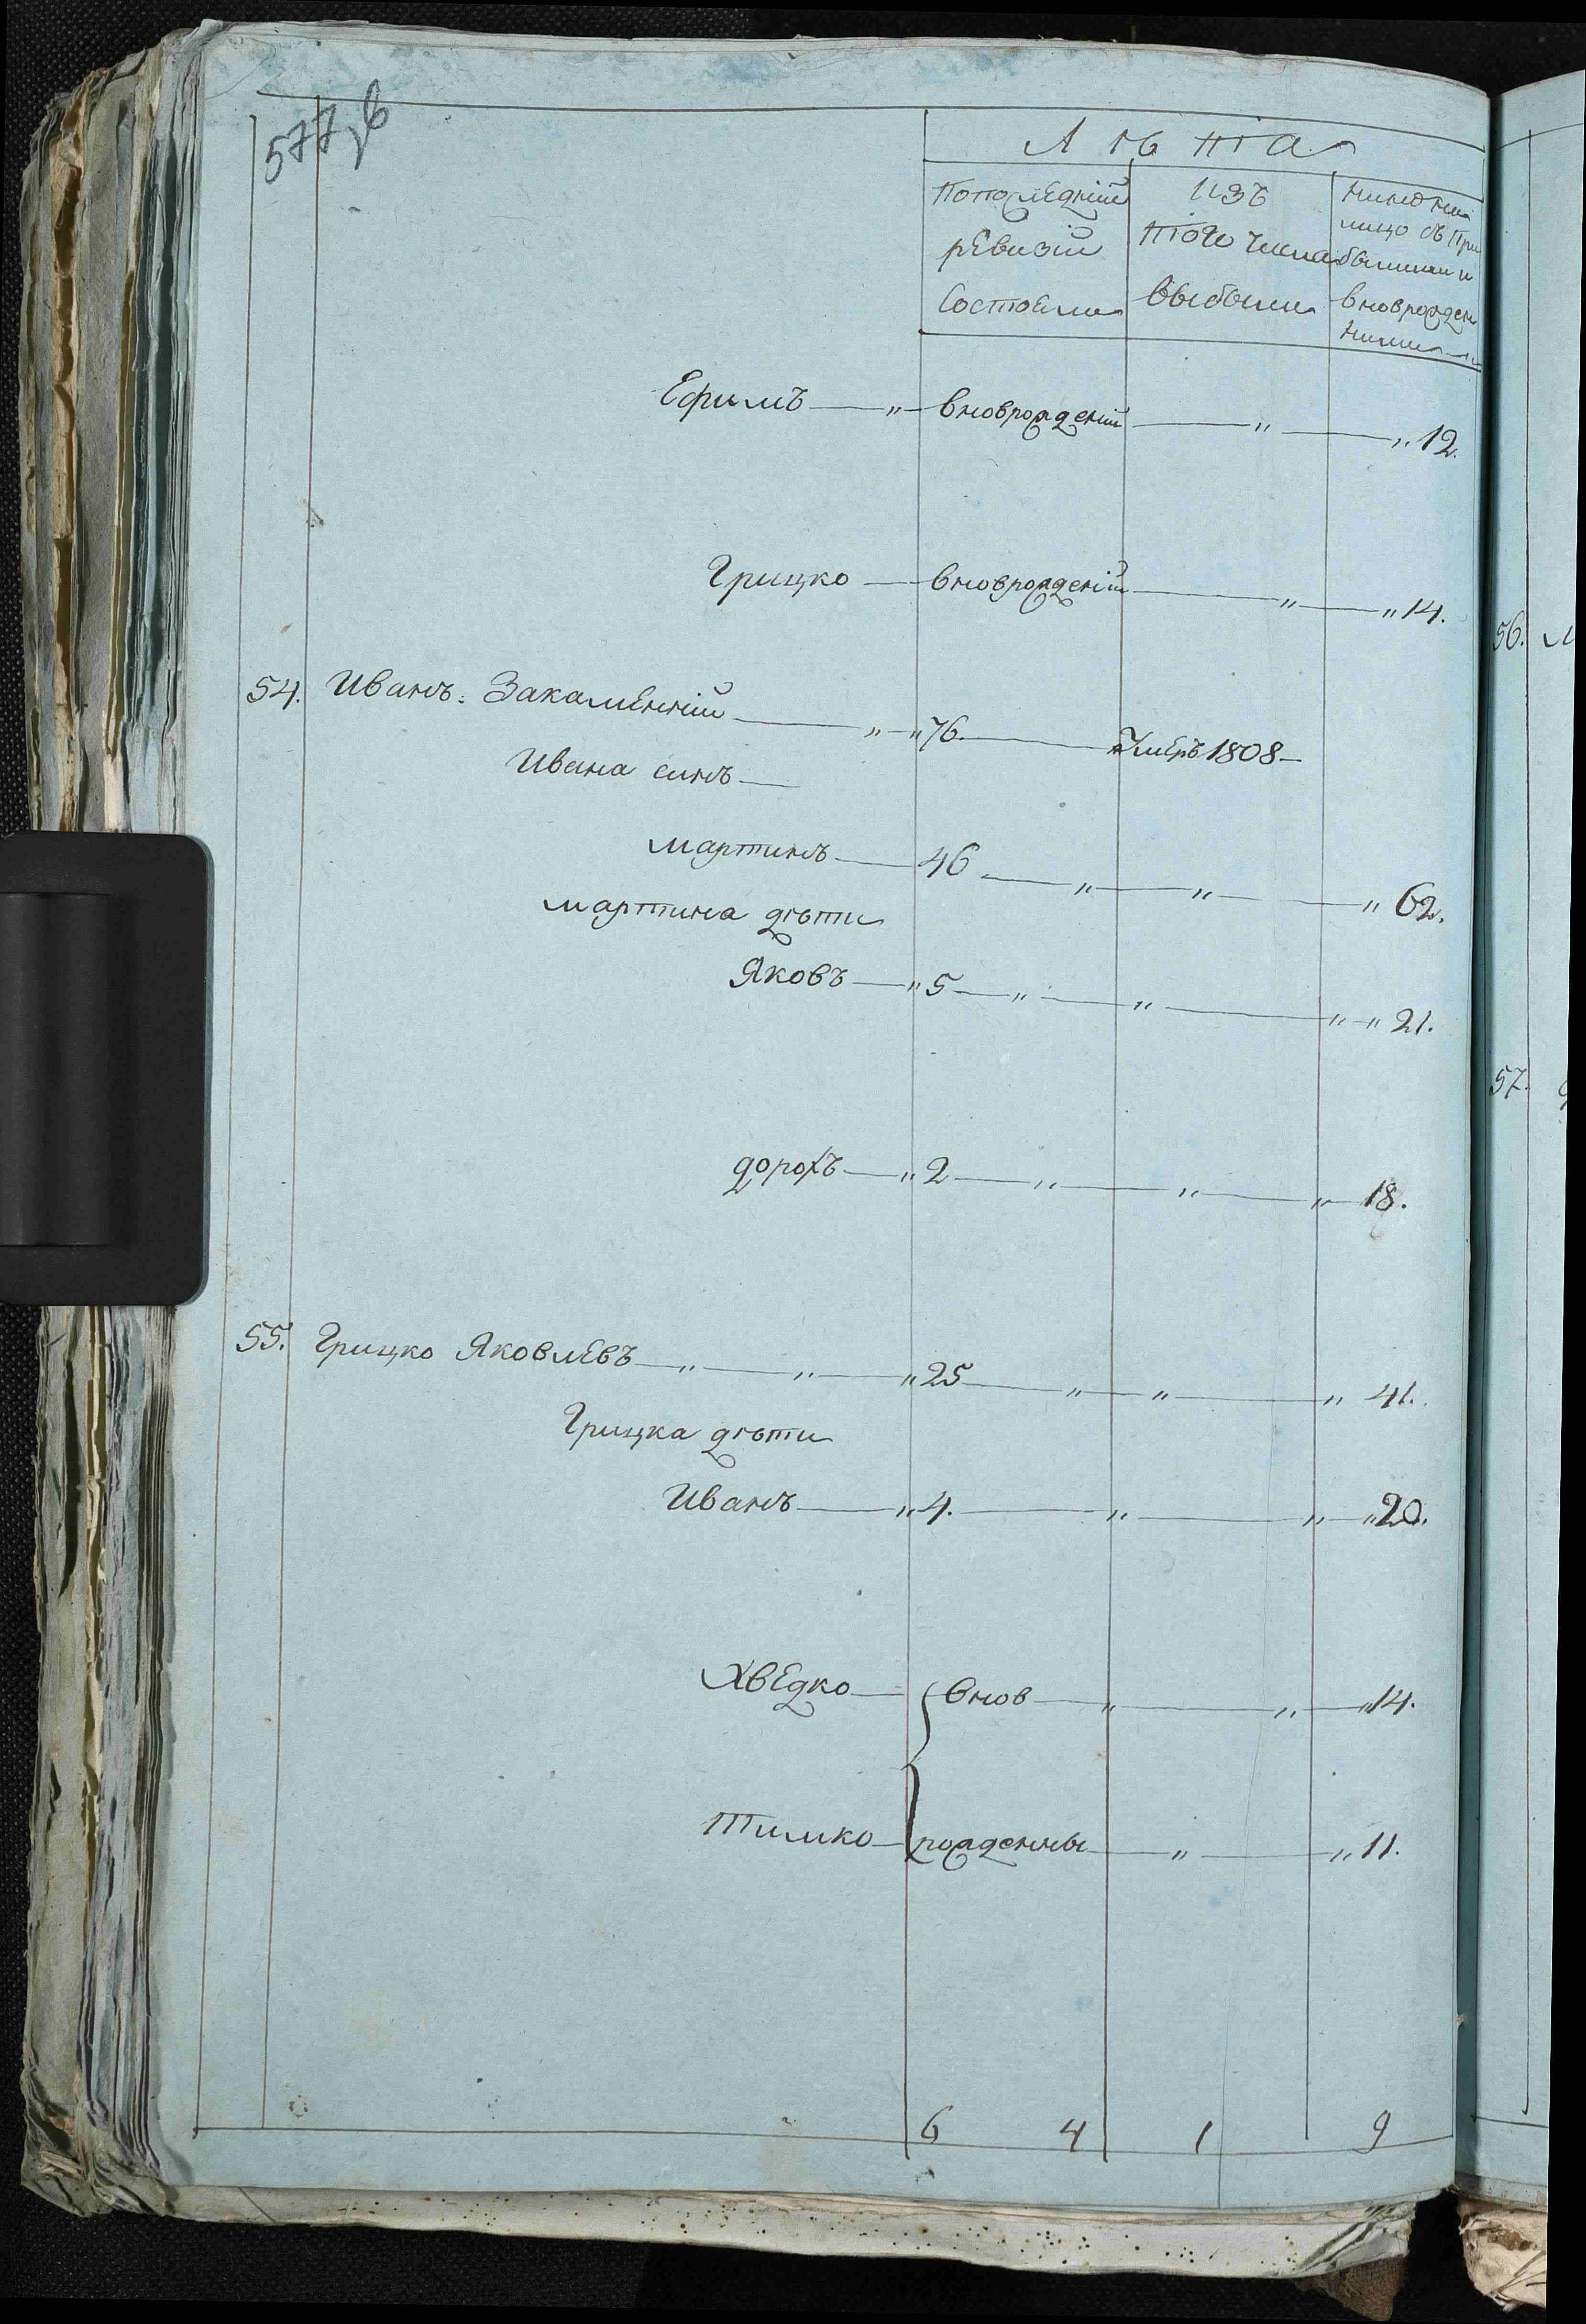 577 б
Лѣта
Попоследнiй
рЕвизiи
Состоели
Изъ
того числа
выбыли
нинѣ на
лицо съ При
былими и
вноврожден
ними
Ефимъ — „ — вноврожденiй — „ — „ 12.
Грицко — вноврожденiй — „ — „ 14.
54. Иванъ. ЗакамЕннiй — „ — „ 76. — УмЕръ 1808 —
Ивана синъ —
мартинъ — 46 — „ — „ — „ 62.
мартина дѣти
Яковъ — „ 5 — „ — „ — „ — „ 21.
дорохъ — „ 2 — „ — „ — „ — 18.
55. Грицко ЯковлЕвъ — „ — „ — „ 25 — „ — „ — „ 41.
Грицка дѣти
Иванъ — „ 4. — „ — „ — „ 20.
ХвЕдко — { внов — „ — „ — „ 14.
Тимко — рожденны — „ — „ 11.
6 4 1 9
56.
57.